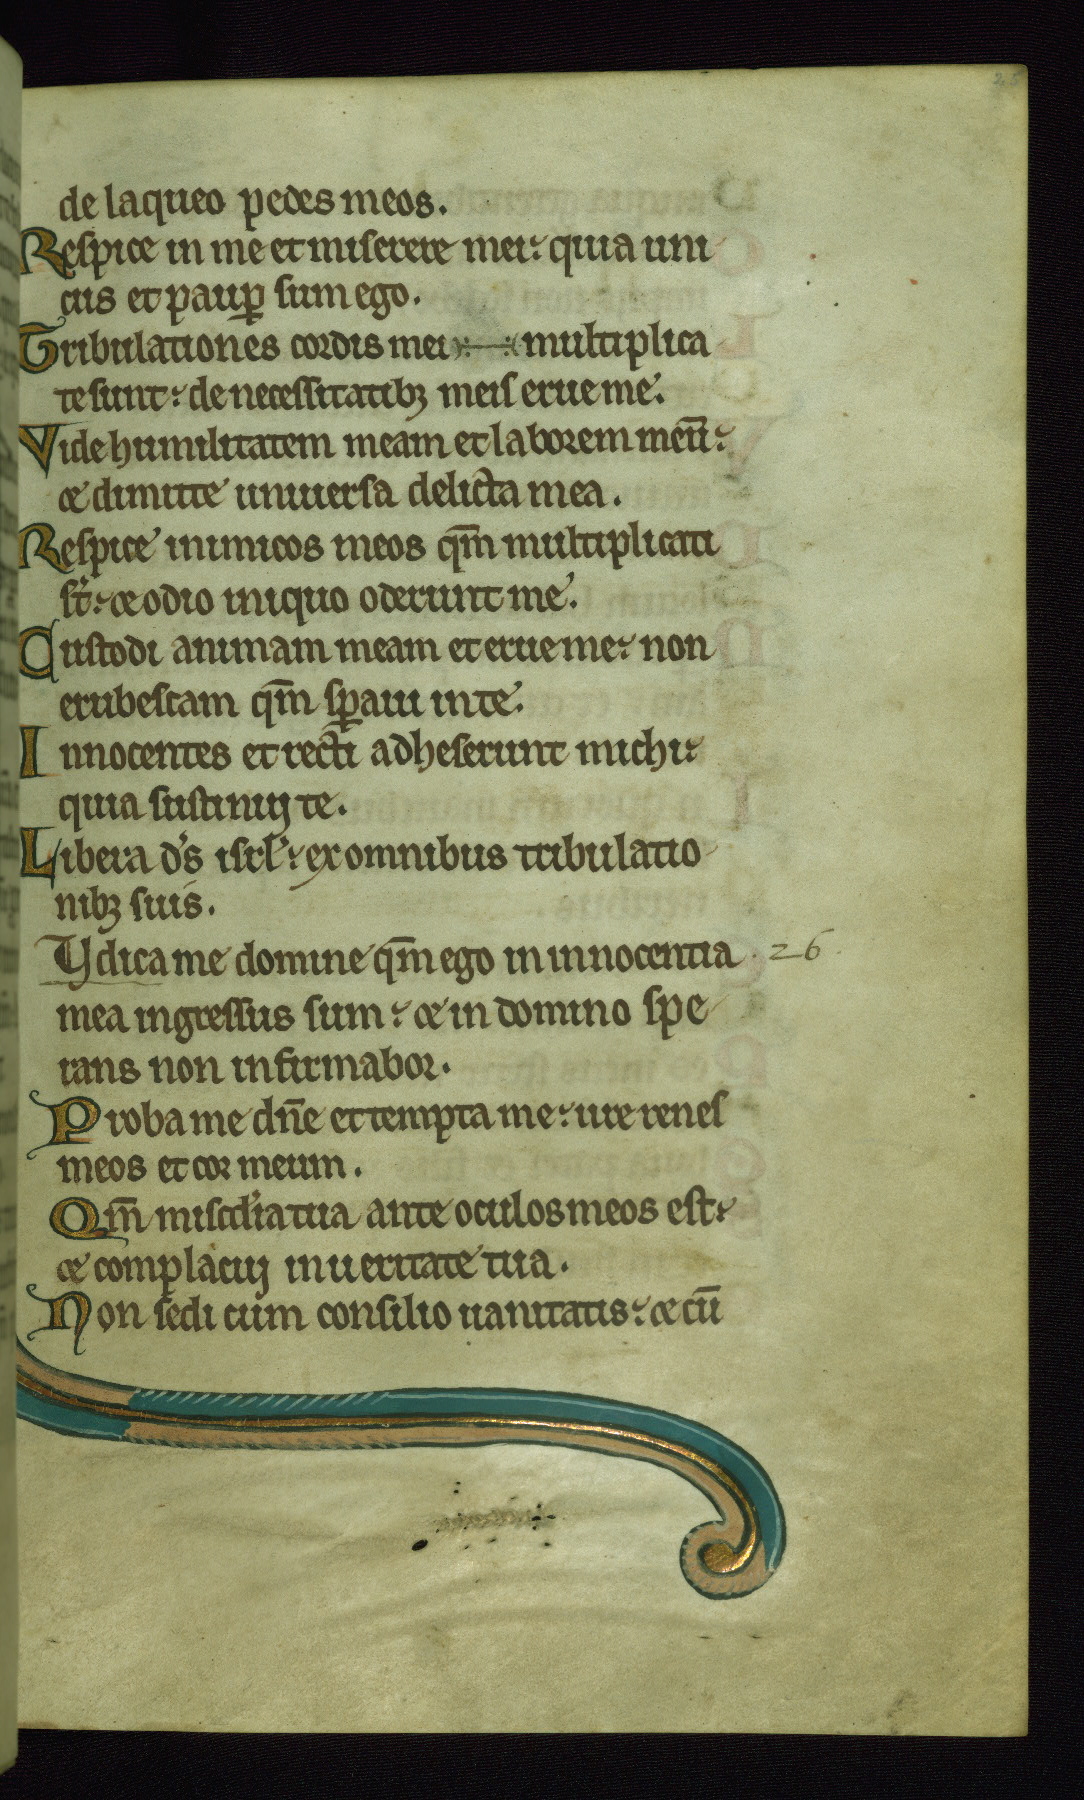 25
de laqueo pedes meos.
Respice in me et miserere mei: quia uni
cus et paup̱ sum ego.
Tribulationes cordis mei multiplica
te sunt: de necessitatibꝫ meis erue me.
Vide humilitatem meam et laborem meū:
et dimitte uniuersa delicta mea.
Respice inimicos meos qm̄ multiplicati
st̄: et odio iniquo oderunt me.
Custodi animam meam et erue me: non
erubescam qm̄ sꝑaui in te.
Innocentes et recti adheserunt michi:
quia sustinuij te.
Libera d̄s isrl̄: ex omnibus tribulatio
nibꝫ suis.
Iudica me domine qm̄ ego in innocentia 26
mea ingressus sum: et in domino spe
rans non infirmabor.
Proba me dn̄e et tempta me: ure renes
meos et cor meum.
Qm̄ misc̄dia tua ante oculos meos est:
et complacuij in ueritate tua.
Non sedi cum consilio uanitatis: et cū